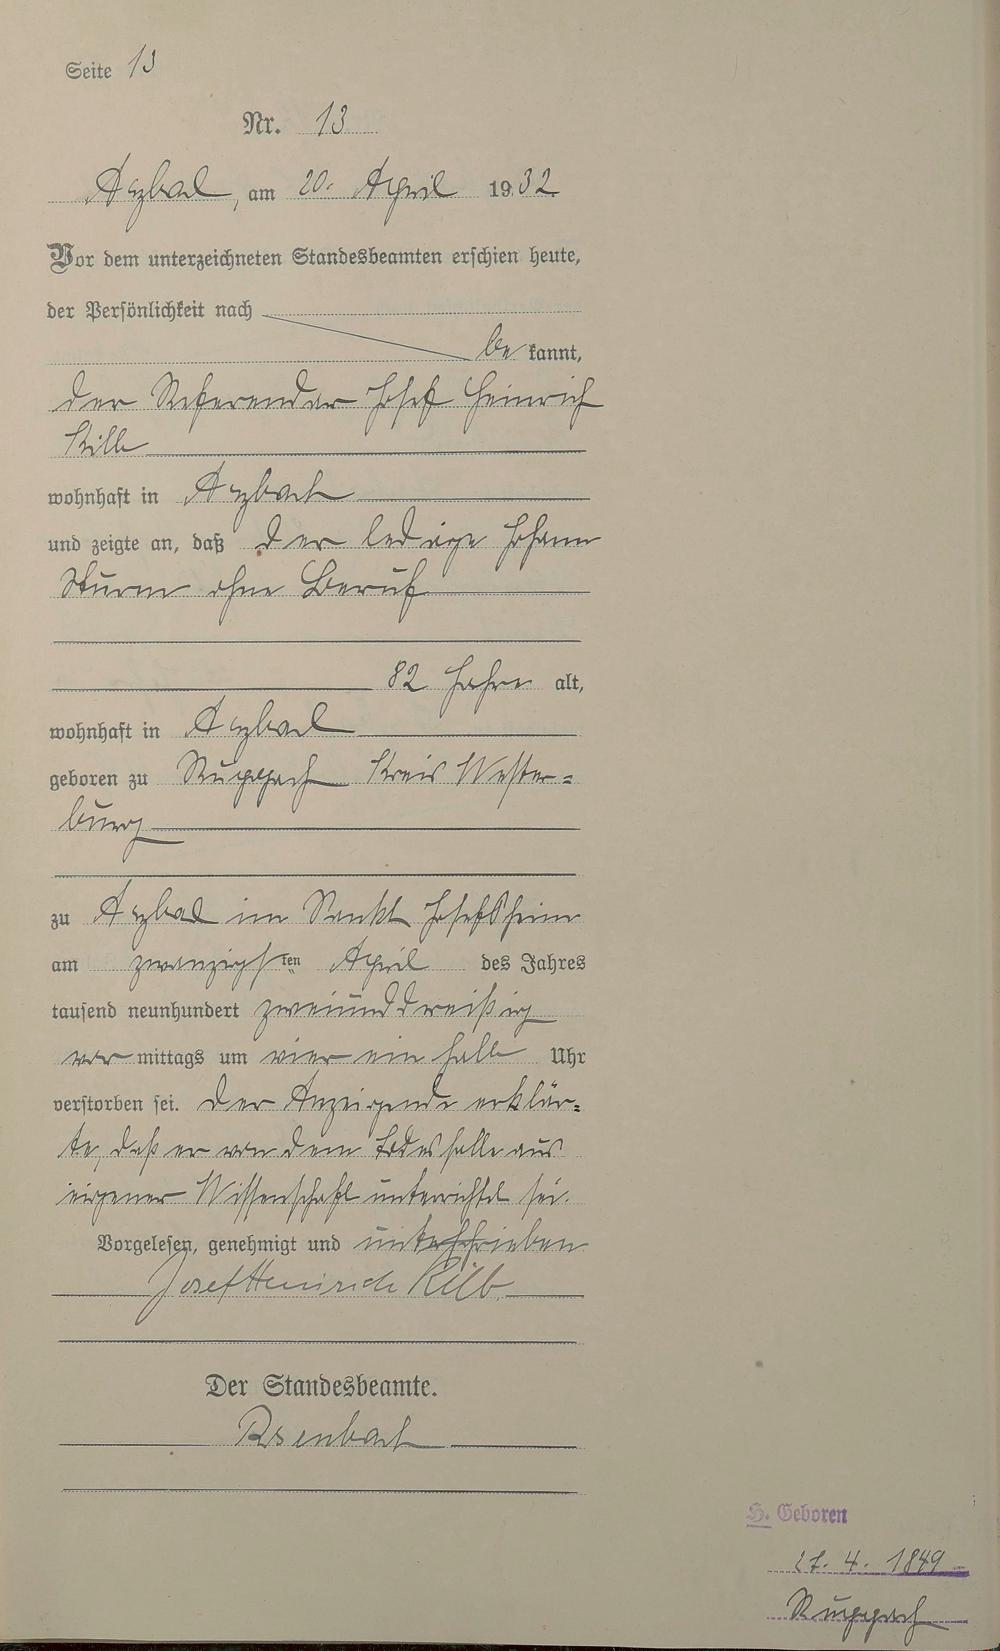 Seite 13
Nr. 13
Arzbach, am 20. April 1932.
Vor dem unterzeichneten Standesbeamten erschien heute,
der Persönlichkeit nach
be kannt,
der Referendar Josef Heinrich
Kilb
wohnhaft in Arzbach
und zeigte an, daß der ledige Johann
Sturm ohne Beruf
82 Jahre alt,
wohnhaft in Arzbach
geboren zu Ruppach Kreis Wester=
burg
zu Arzbach im Sankt Josefsheim
am zwanzigsten April des Jahres
tausend neunhundert zweiunddreißig
vor mittags um vier ein halb Uhr
verstorben sei. Der Anzeigende erklär=
te, daß er von dem Todesfalle aus
eigener Wissenschaft unterrichtet sei.
Vorgelesen, genehmigt und unterschrieben
Josef Heinrich Kilb
Der Standesbeamte.
H. Geboren
27. 4. 1849
Ruppach